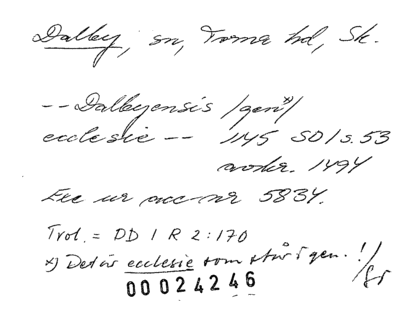 Dalby, sn, Torna hd, Sk.
-- Dalbyensis /gen x)/
ecclesie -- 1145 SD 1 s. 53
avskr. 1494
Exc ur acc-nr 5834.
Trol. = DD I R 2:170
x) Det är ecclesie som står i gen. !/
00024246